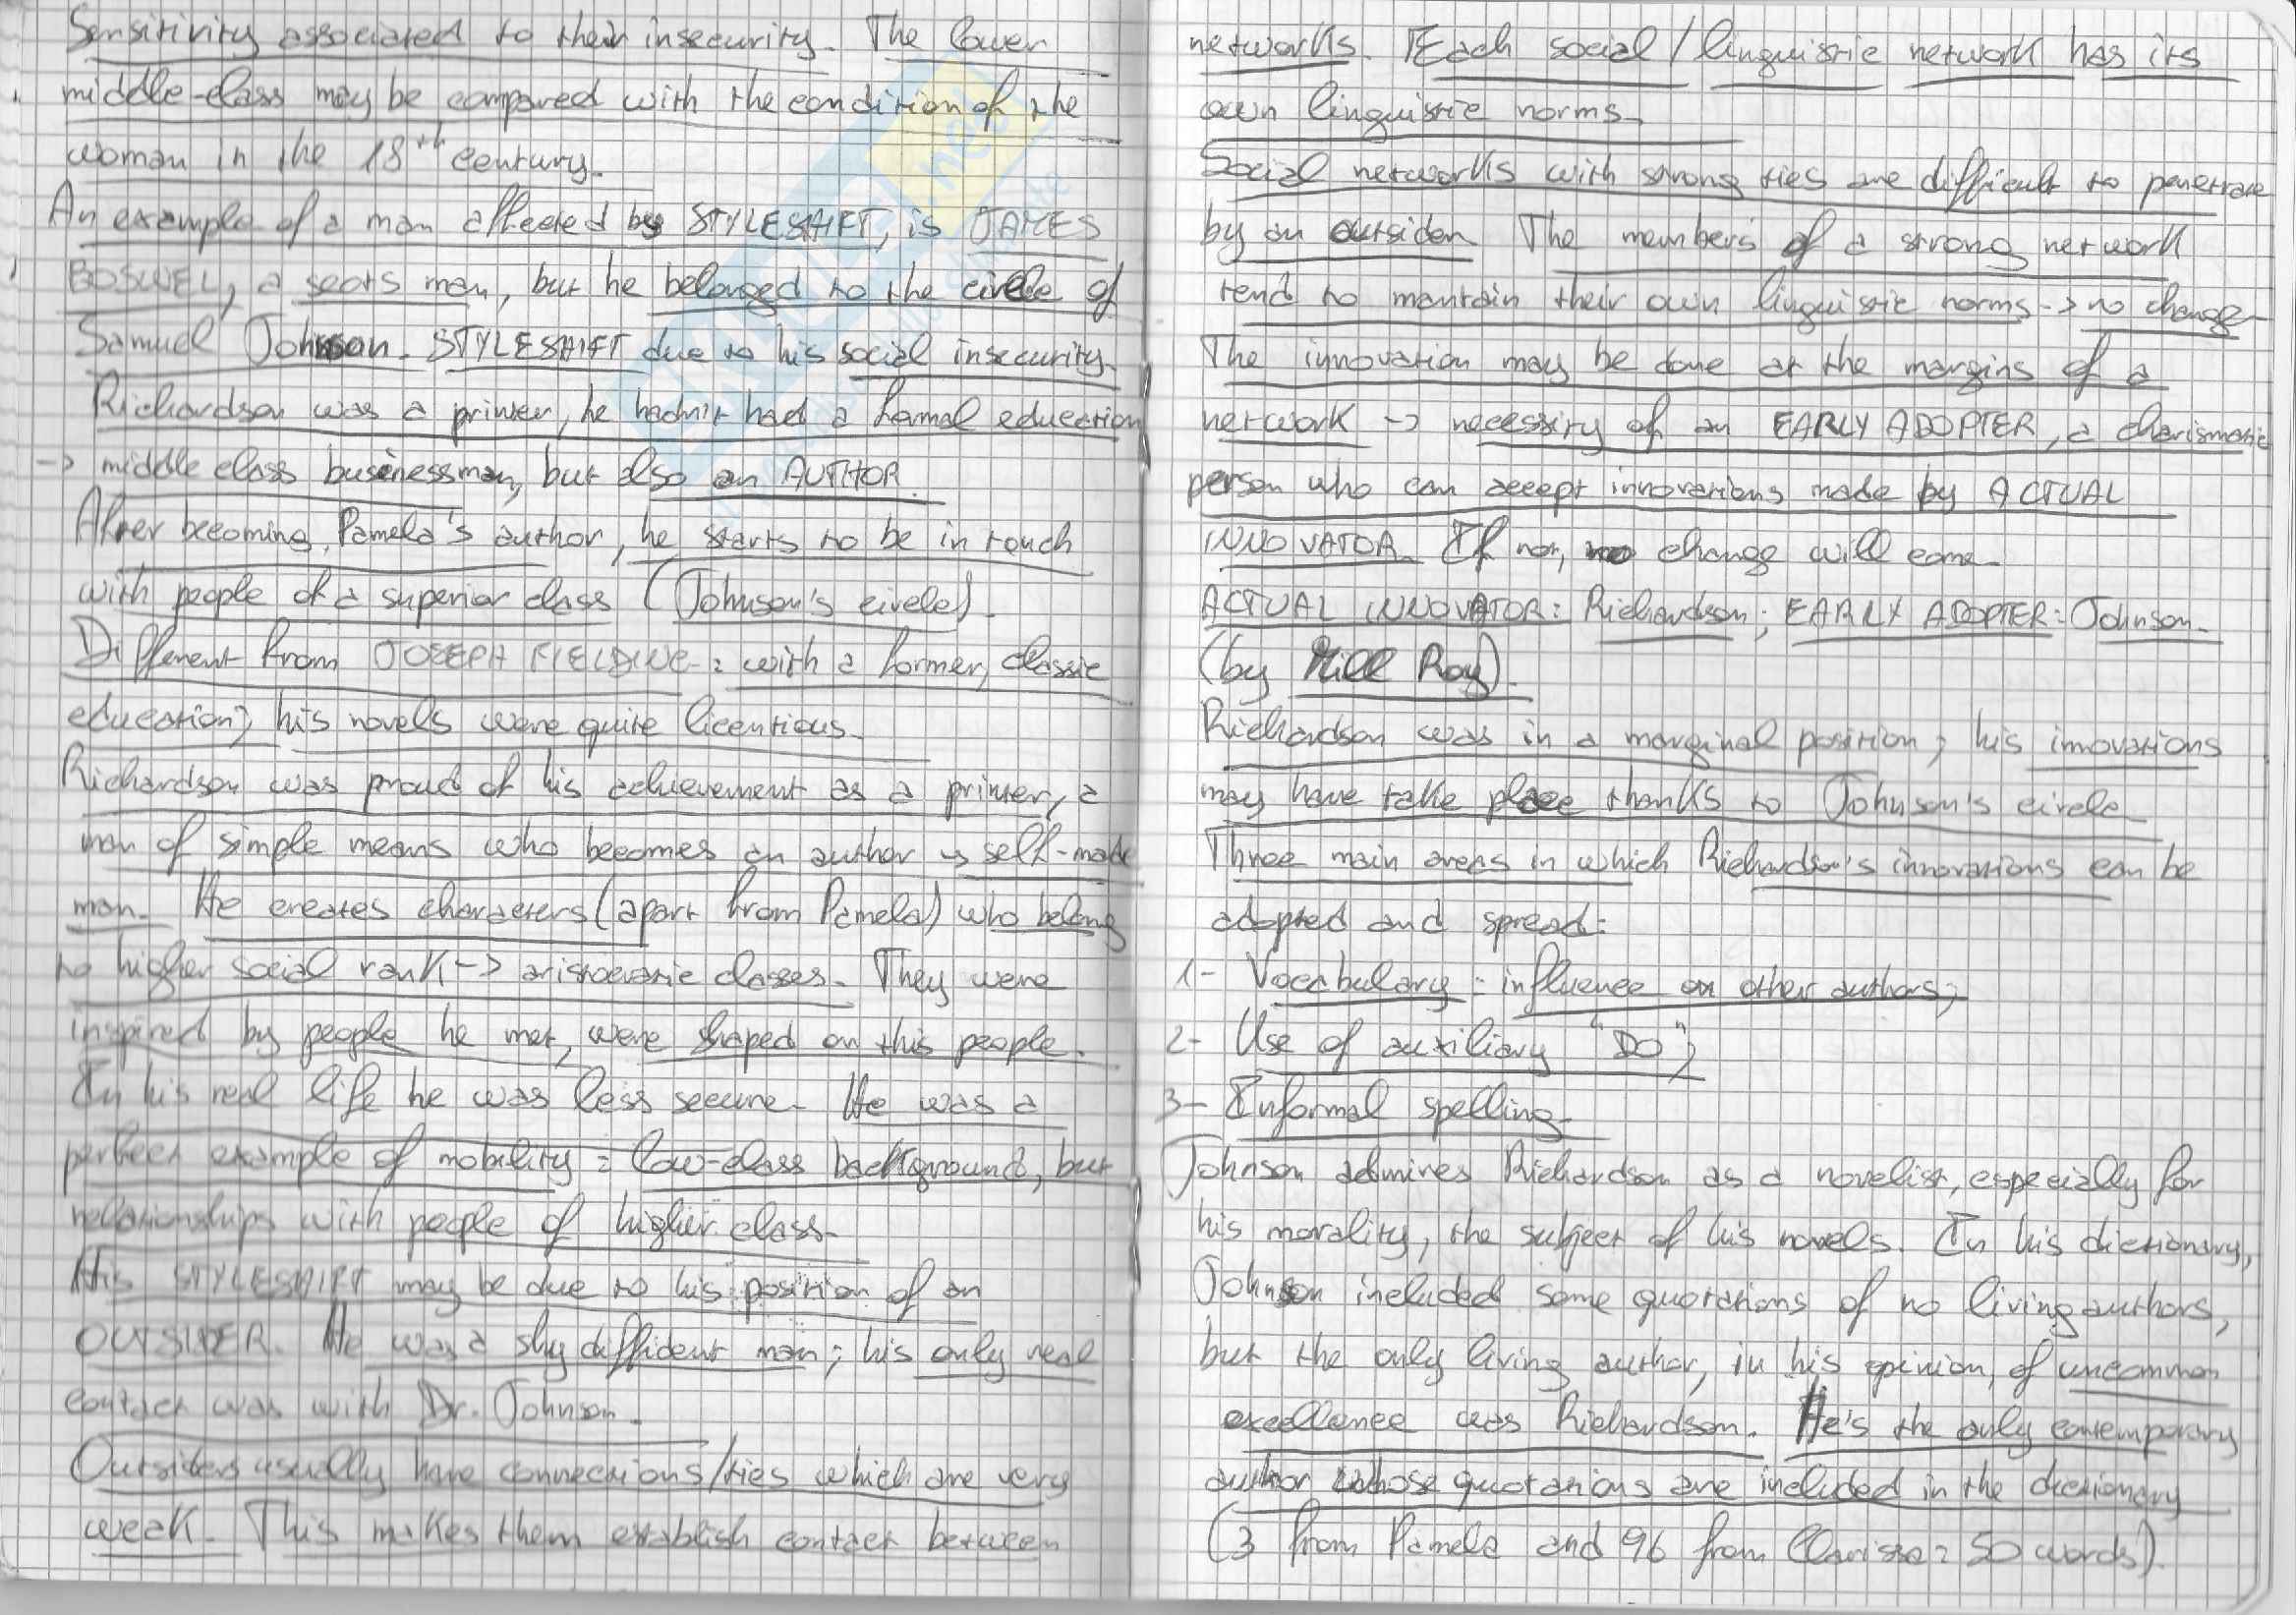 Sensitivity associated to their insecurity. The lower
middle-class may be compared with the condition of the
woman in the 18th century.
An example of a man affected by STYLESHIFT, is JAMES
BOSWEL, a scots man, but he belonged to the circle of
Samuel Johnson. STYLESHIFT due to his social insecurity.
Richardson was a printer, he hadnit had a formal education
-> middle class businessman, but also an AUTHOR.
After becoming Pamela's author, he starts to be in touch
with people of a superior class (Johnson's circle).
Different from JOSEPH FIELDING: with a former, classic
education; his novels were quite licentious.
Richardson was proud of his achievement as a printer, a
man of simple means who becomes an author -> self-made
man. He creates characters (apart from Pamela) who belong
to higher social rank -> aristocratic classes. They were
inspired by people he met, were shaped on this people.
In his real life he was less secure. He was a
perfect example of mobility = low-class background, but
relationships with people of higher class.
His STYLESHIFT may be due to his position of an
OUTSIDER. He was a shy diffident man; his only real
contact was with Dr. Johnson.
Outsiders usually have connections/ties which are very
weak. This makes them establish contact between
networks. Each social/linguistic network has its
own linguistic norms.
Social networks with strong ties are difficult to penetrate
by an outsider. The members of a strong network
tend to mantain their own linguistic norms -> no change.
The innovation may be done at the margins of a
network -> necessity of an EARLY ADOPTER, a charismatic
person who can accept innovations made by ACTUAL
INNOVATOR. If not, no change will come.
ACTUAL INNOVATOR: Richardson; EARLY ADOPTER: Johnson.
(by Mill Roy).
Richardson was in a marginal position; his innovations
may have take place thanks to Johnson's circle.
Three main areas in which Richardson's innovations can be
adopted and spread:
1- Vocabulary: influence on other authors;
2- Use of auxiliary "DO";
3- Informal spelling.
Johnson admires Richardson as a novelist, especially for
his morality, the subject of his novels. In his dictionary,
Johnson included some quotations of no living authors,
but the only living author, in his opinion, of uncommon
excellence was Richardson. He's the only contemporary
author whose quotations are included in the dictionary
(3 from Pamela and 96 from Clarissa = 50 words).